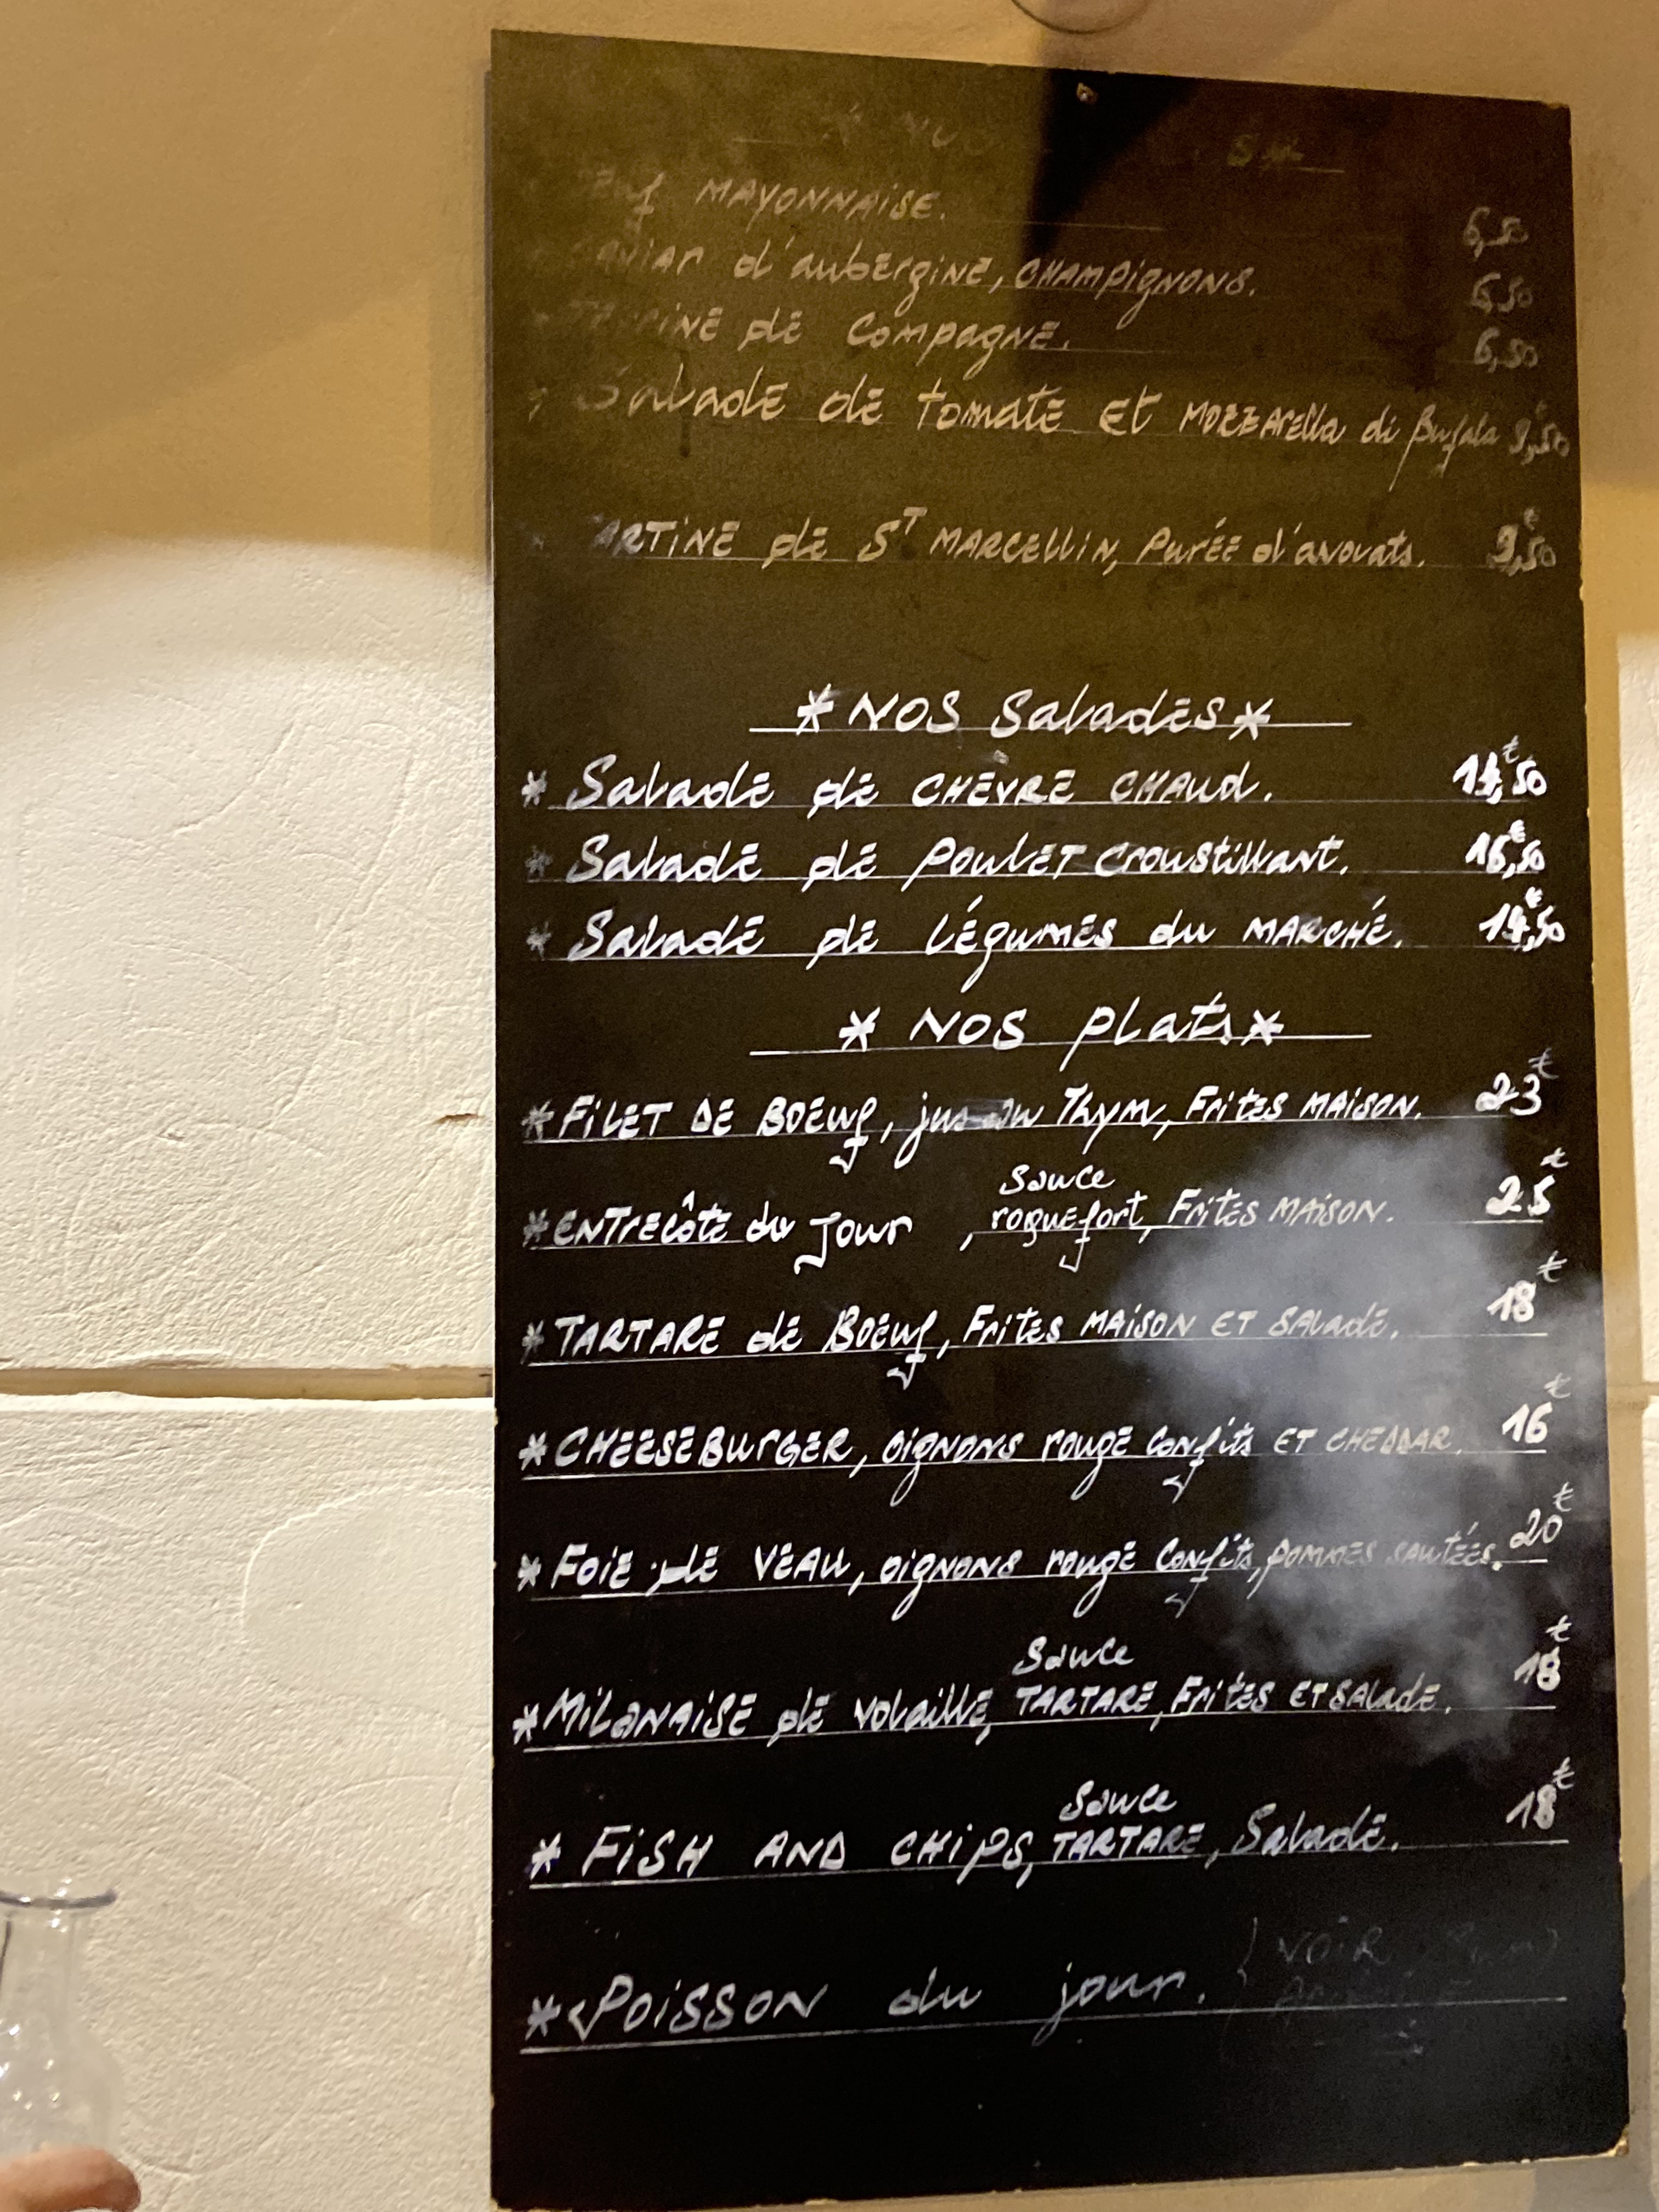 MAYONNAISE. 6,50
d'aubergine, CHAMPIGNONS. 6,50
de Compagne. 6,50
Salade de tomate et MOZZArella di Bufala 9,50
de ST MARCELLIN, Purée d'avovats. 9,50€
* NOS Salades *
* Salade de CHÈVRE CHAud. ,50€
* Salade de Poulet Croustillant. 16,50€
* Salade de légumes du MARCHÉ. 14,50€
* NOS plats *
* FILET DE BOEUf, jus au Thym, Frites MAISON. 23€
* ENTRECôte du Jour, Sauce roquefort, Frites MAISON. 25€
* TARTARE de BOEUf, Frites MAISON ET SALADE. 18€
* CHEESEBURGER, oignons rouge Confits ET CHEDDAR. 16€
* FOIE de VEAU, oignons rouge Confits, pommes sautées. 20€
* MilANAISE de volaille, Sauce TARTARE, Frites ET SALADE. 18€
* FISH AND CHIPS, Sauce TARTARE, Salade. 18€
* POISSON du jour. (VOIR